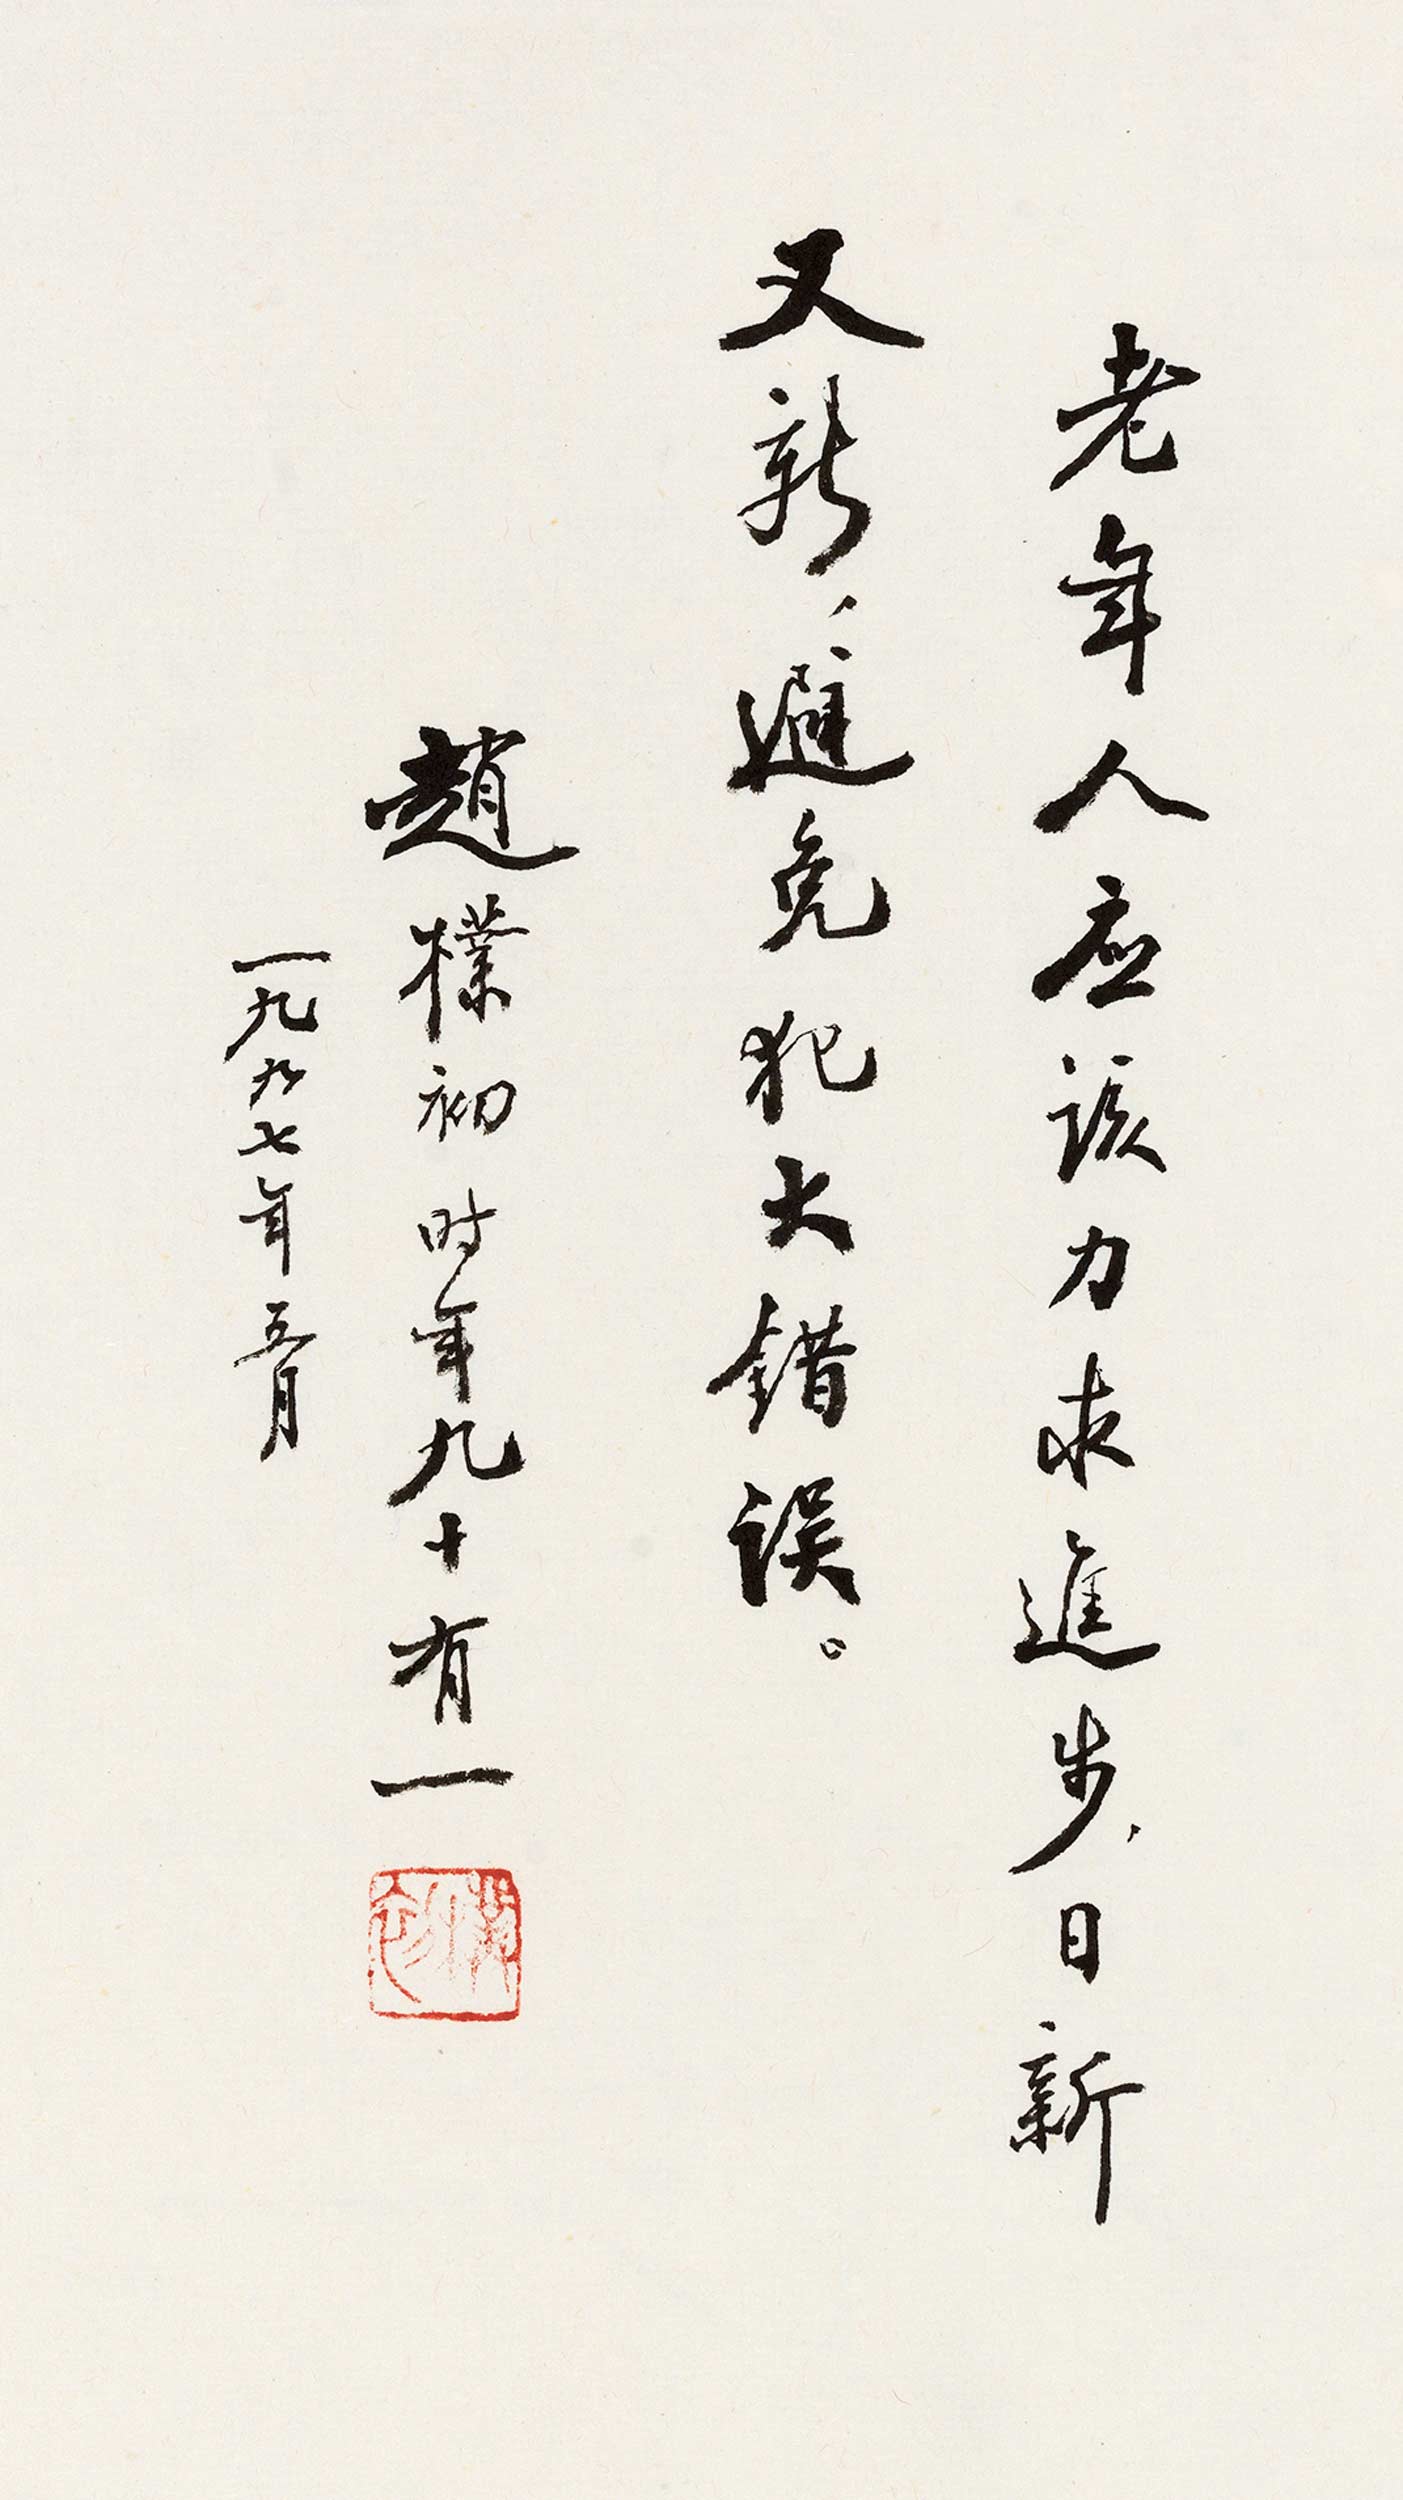 老年人应该力求進步，日新
又新，避免犯大错误。
趙樸初时年九十有一
一九九七年五月
樸初